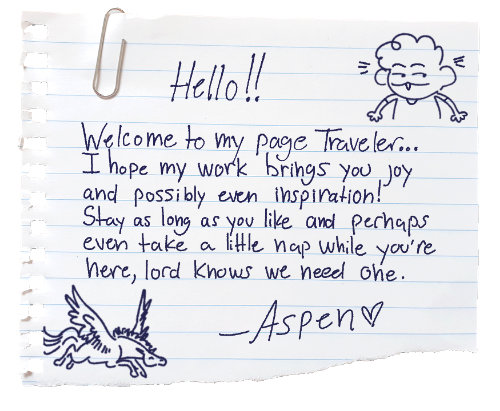 Hello!!
Welcome to my page Traveler...
I hope my work brings you joy
and possibly even inspiration!
Stay as long as you like and perhaps
even take a little nap while you're
here, lord knows we need one.
—Aspen♡